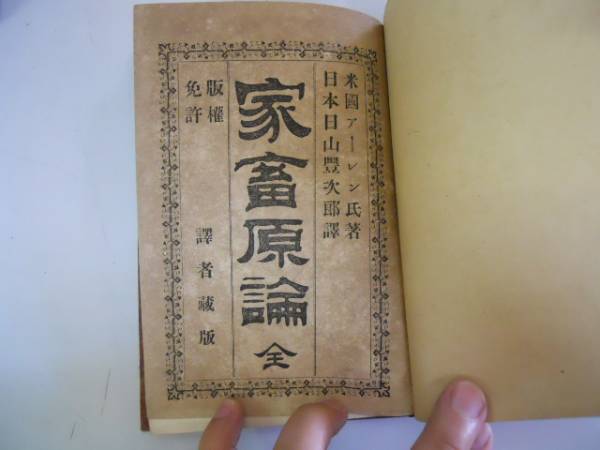 米國アーレン氏著
日本日山豐次郎譯
家畜原論 全
版權
免許
譯者藏版